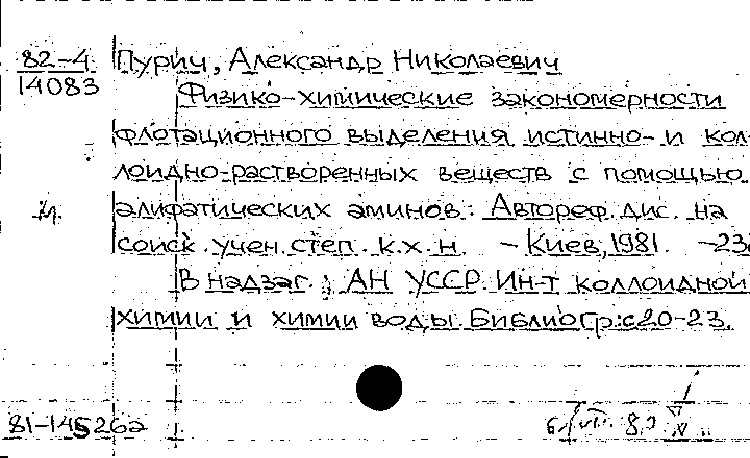 82-4 Пурич, Александр Николаевич
14083
Физико-химические закономерности
флотационного выделения истинно- и кол-
лоидно-растворенных веществ с помощью
алифатических аминов: Автореф. дис. на
соиск. учен. степ. к.х.н. - Киев, 1981. -23
В надзаг.: АН УССР. Ин-т коллоидной
химии и химии воды. Библиогр.: с20-23.
81-14526а